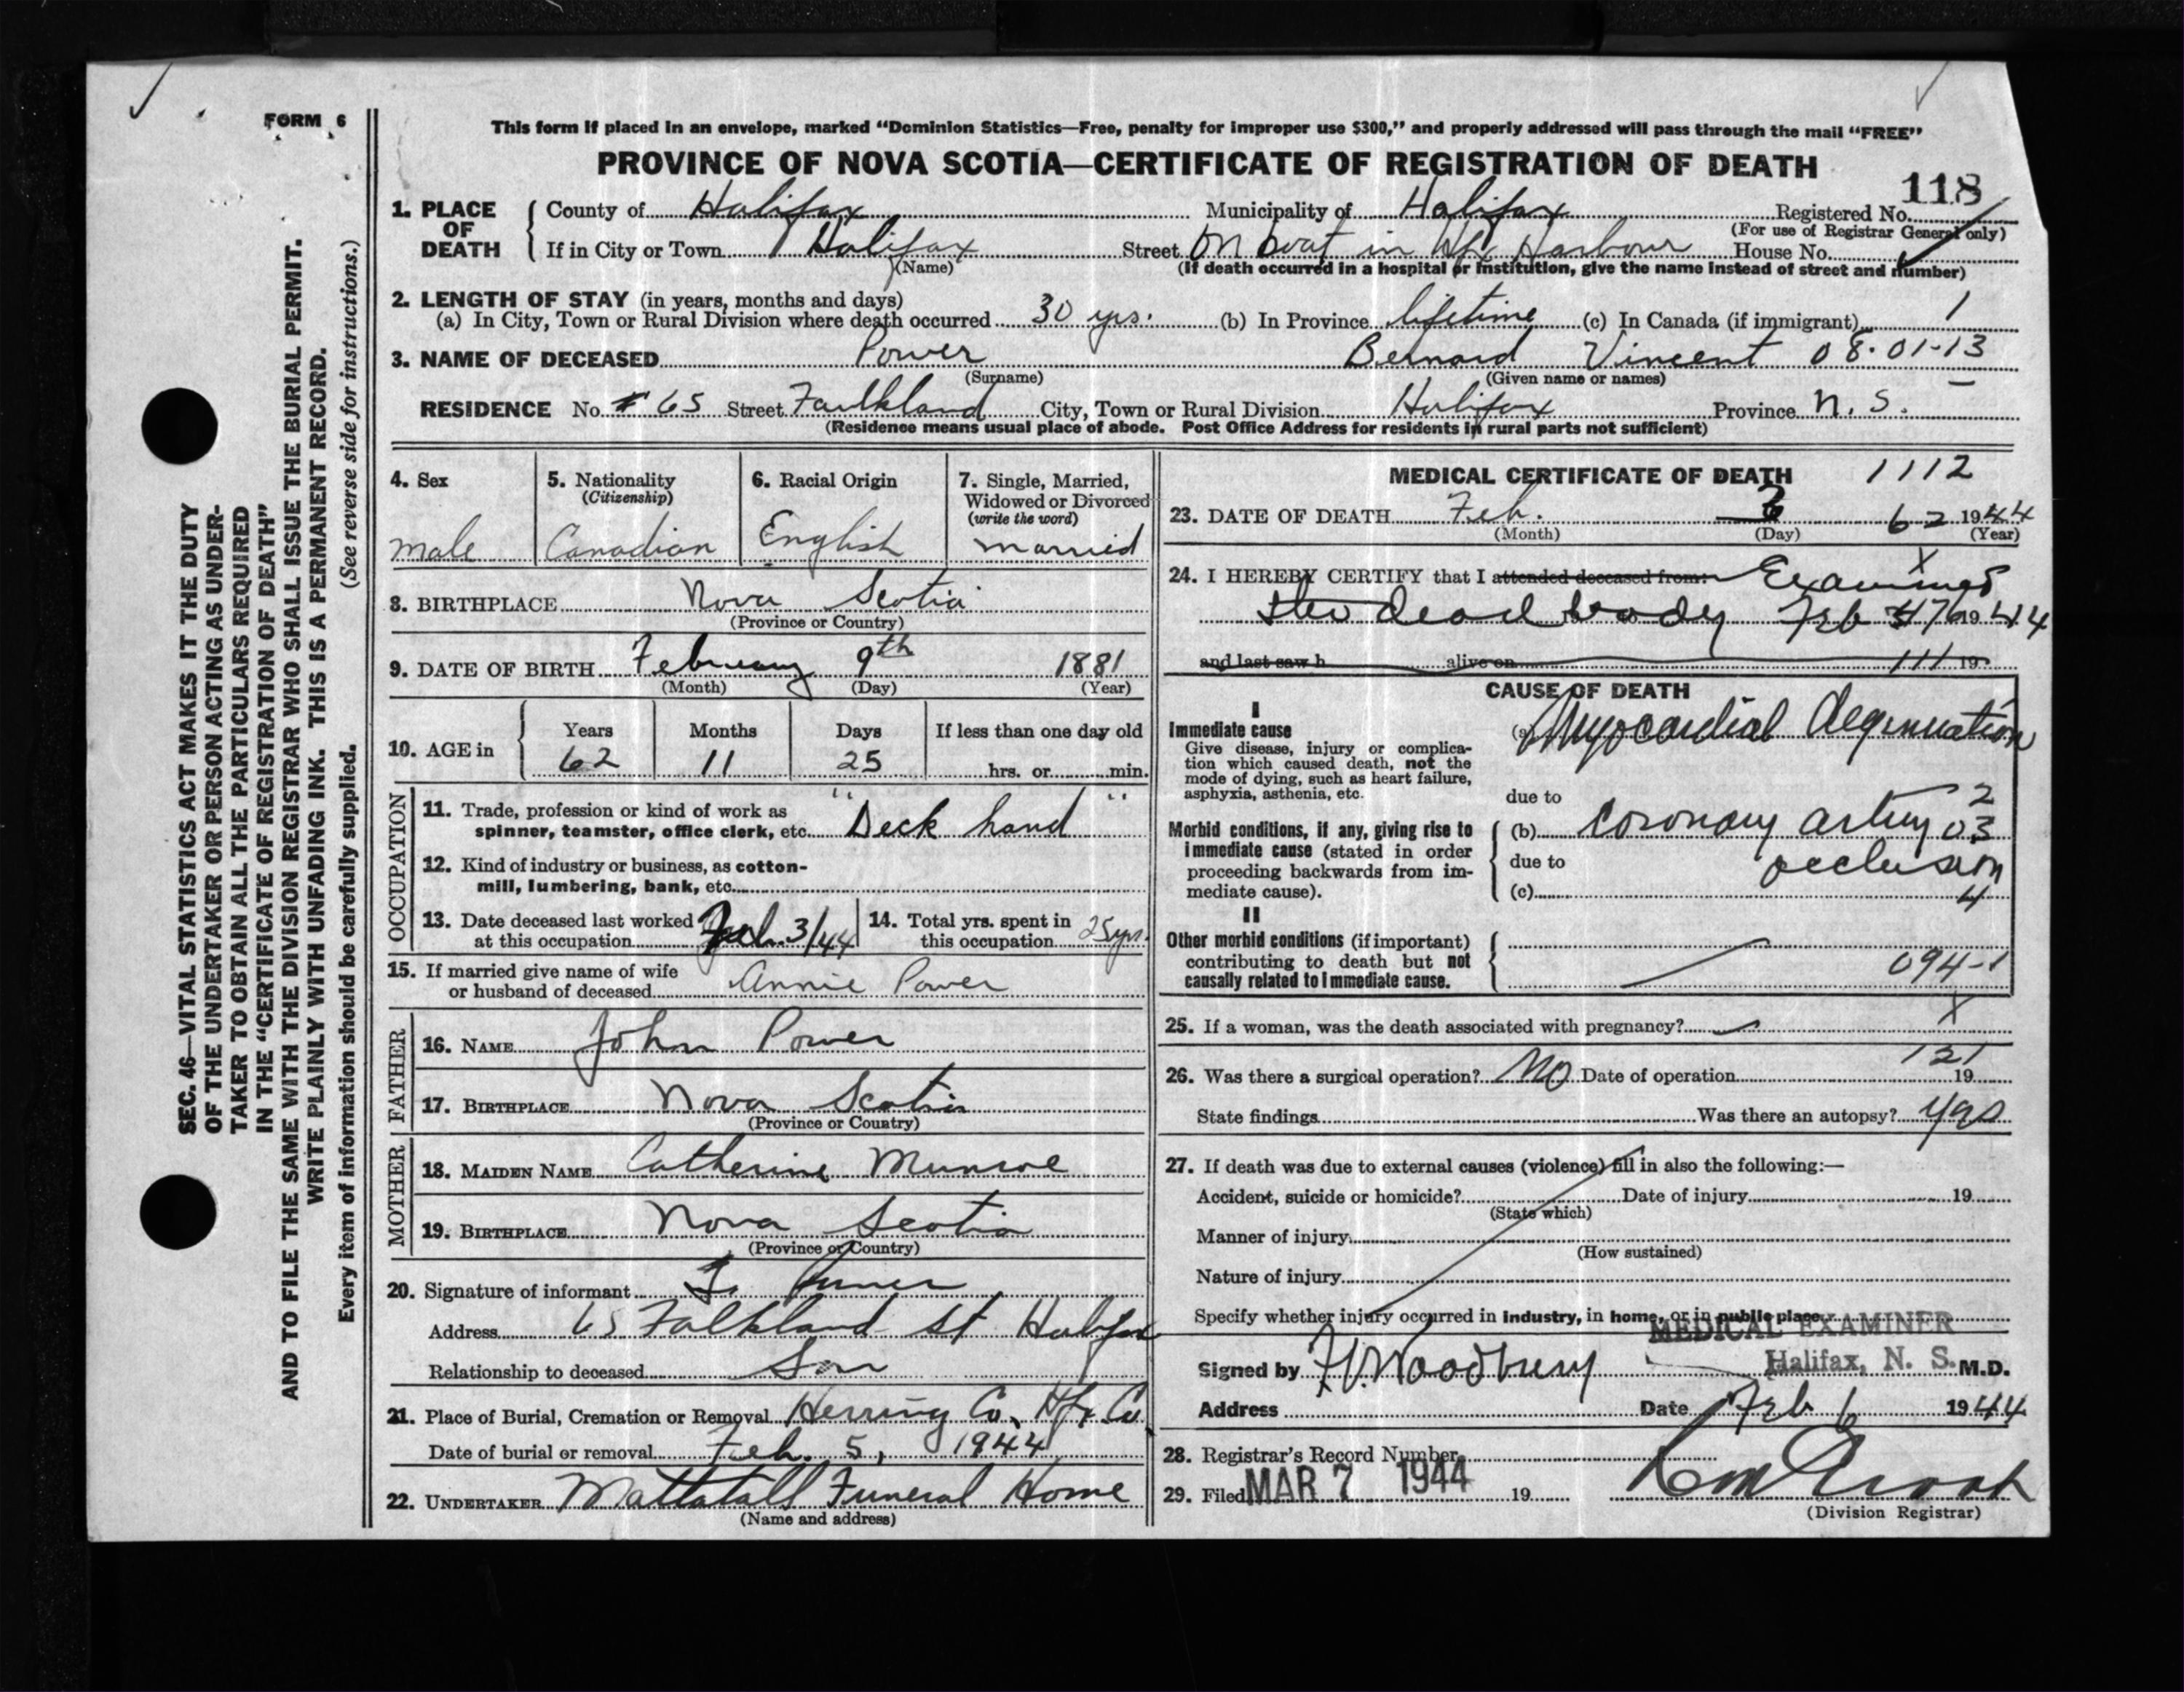 FORM 6
This form if placed in an envelope, marked “Dominion Statistics—Free, penalty for improper use $300,” and properly addressed will pass through the mail “FREE”
PROVINCE OF NOVA SCOTIA—CERTIFICATE OF REGISTRATION OF DEATH
118
1. PLACE OF DEATH
County of Halifax Municipality of Halifax Registered No.
(For use of Registrar General only)
If in City or Town Halifax Street On boat in Hfx Harbour House No.
(Name) (If death occurred in a hospital or institution, give the name instead of street and number)
2. LENGTH OF STAY (in years, months and days)
(a) In City, Town or Rural Division where death occurred 30 yrs. (b) In Province lifetime (c) In Canada (if immigrant) 1
3. NAME OF DECEASED Power Bernard Vincent 08-01-13
(Surname) (Given name or names)
RESIDENCE No. # 65 Street Faulkland City, Town or Rural Division Halifax Province N. S.
(Residence means usual place of abode. Post Office Address for residents in rural parts not sufficient)
4. Sex
male
5. Nationality
(Citizenship)
Canadian
6. Racial Origin
English
7. Single, Married,
Widowed or Divorced
(write the word)
married
8. BIRTHPLACE Nova Scotia
(Province or Country)
9. DATE OF BIRTH February 9th 1881
(Month) (Day) (Year)
10. AGE in
Years Months Days If less than one day old
62 11 25 hrs. or min.
OCCUPATION
11. Trade, profession or kind of work as
spinner, teamster, office clerk, etc. "Deck hand"
12. Kind of industry or business, as cotton-
mill, lumbering, bank, etc.
13. Date deceased last worked
at this occupation Feb. 3/44
14. Total yrs. spent in
this occupation 25 yrs.
15. If married give name of wife
or husband of deceased Annie Power
FATHER
16. NAME John Power
17. BIRTHPLACE Nova Scotia
(Province or Country)
MOTHER
18. MAIDEN NAME Catherine Munroe
19. BIRTHPLACE Nova Scotia
(Province or Country)
20. Signature of informant Power
Address 65 Falkland St Halifax
Relationship to deceased Son
21. Place of Burial, Cremation or Removal Herring Co. Hfx Co.
Date of burial or removal Feb. 5, 1944
22. UNDERTAKER Mattatall Funeral Home
(Name and address)
MEDICAL CERTIFICATE OF DEATH 1112
23. DATE OF DEATH Feb. 3 62 1944
(Month) (Day) (Year)
24. I HEREBY CERTIFY that I attended deceased from: Examined X
the dead body Feb 1944
and last saw h alive on 111 19
CAUSE OF DEATH
I
Immediate cause
Give disease, injury or complica-
tion which caused death, not the
mode of dying, such as heart failure,
asphyxia, asthenia, etc.
(a) Myocardial degeneration
due to 2
Morbid conditions, if any, giving rise to
immediate cause (stated in order
proceeding backwards from im-
mediate cause).
(b) Coronary artery 03
due to occlusion
(c) 4
II
Other morbid conditions (if important)
contributing to death but not
causally related to immediate cause.
094-1
25. If a woman, was the death associated with pregnancy? X
121
26. Was there a surgical operation? No Date of operation 19
State findings Was there an autopsy? Yes
27. If death was due to external causes (violence) fill in also the following:—
Accident, suicide or homicide? Date of injury 19
(State which)
Manner of injury
(How sustained)
Nature of injury
Specify whether injury occurred in industry, in home, or in public place
MEDICAL EXAMINER
Halifax, N. S.
Signed by Woodbury M.D.
Address Date Feb 6 1944
28. Registrar's Record Number
29. Filed MAR 7 1944 19
(Division Registrar)
SEC. 46—VITAL STATISTICS ACT MAKES IT THE DUTY
OF THE UNDERTAKER OR PERSON ACTING AS UNDER-
TAKER TO OBTAIN ALL THE PARTICULARS REQUIRED
IN THE “CERTIFICATE OF REGISTRATION OF DEATH”
AND TO FILE THE SAME WITH THE DIVISION REGISTRAR WHO SHALL ISSUE THE BURIAL PERMIT.
WRITE PLAINLY WITH UNFADING INK. THIS IS A PERMANENT RECORD.
Every item of information should be carefully supplied. (See reverse side for instructions.)